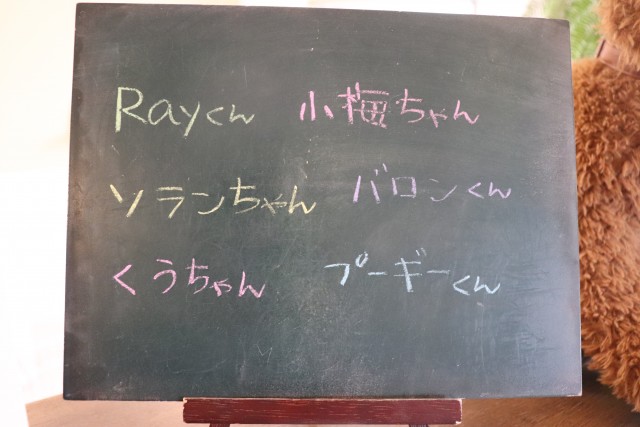 Rayくん 小梅ちゃん
ソランちゃん バロンくん
くうちゃん プーギーくん